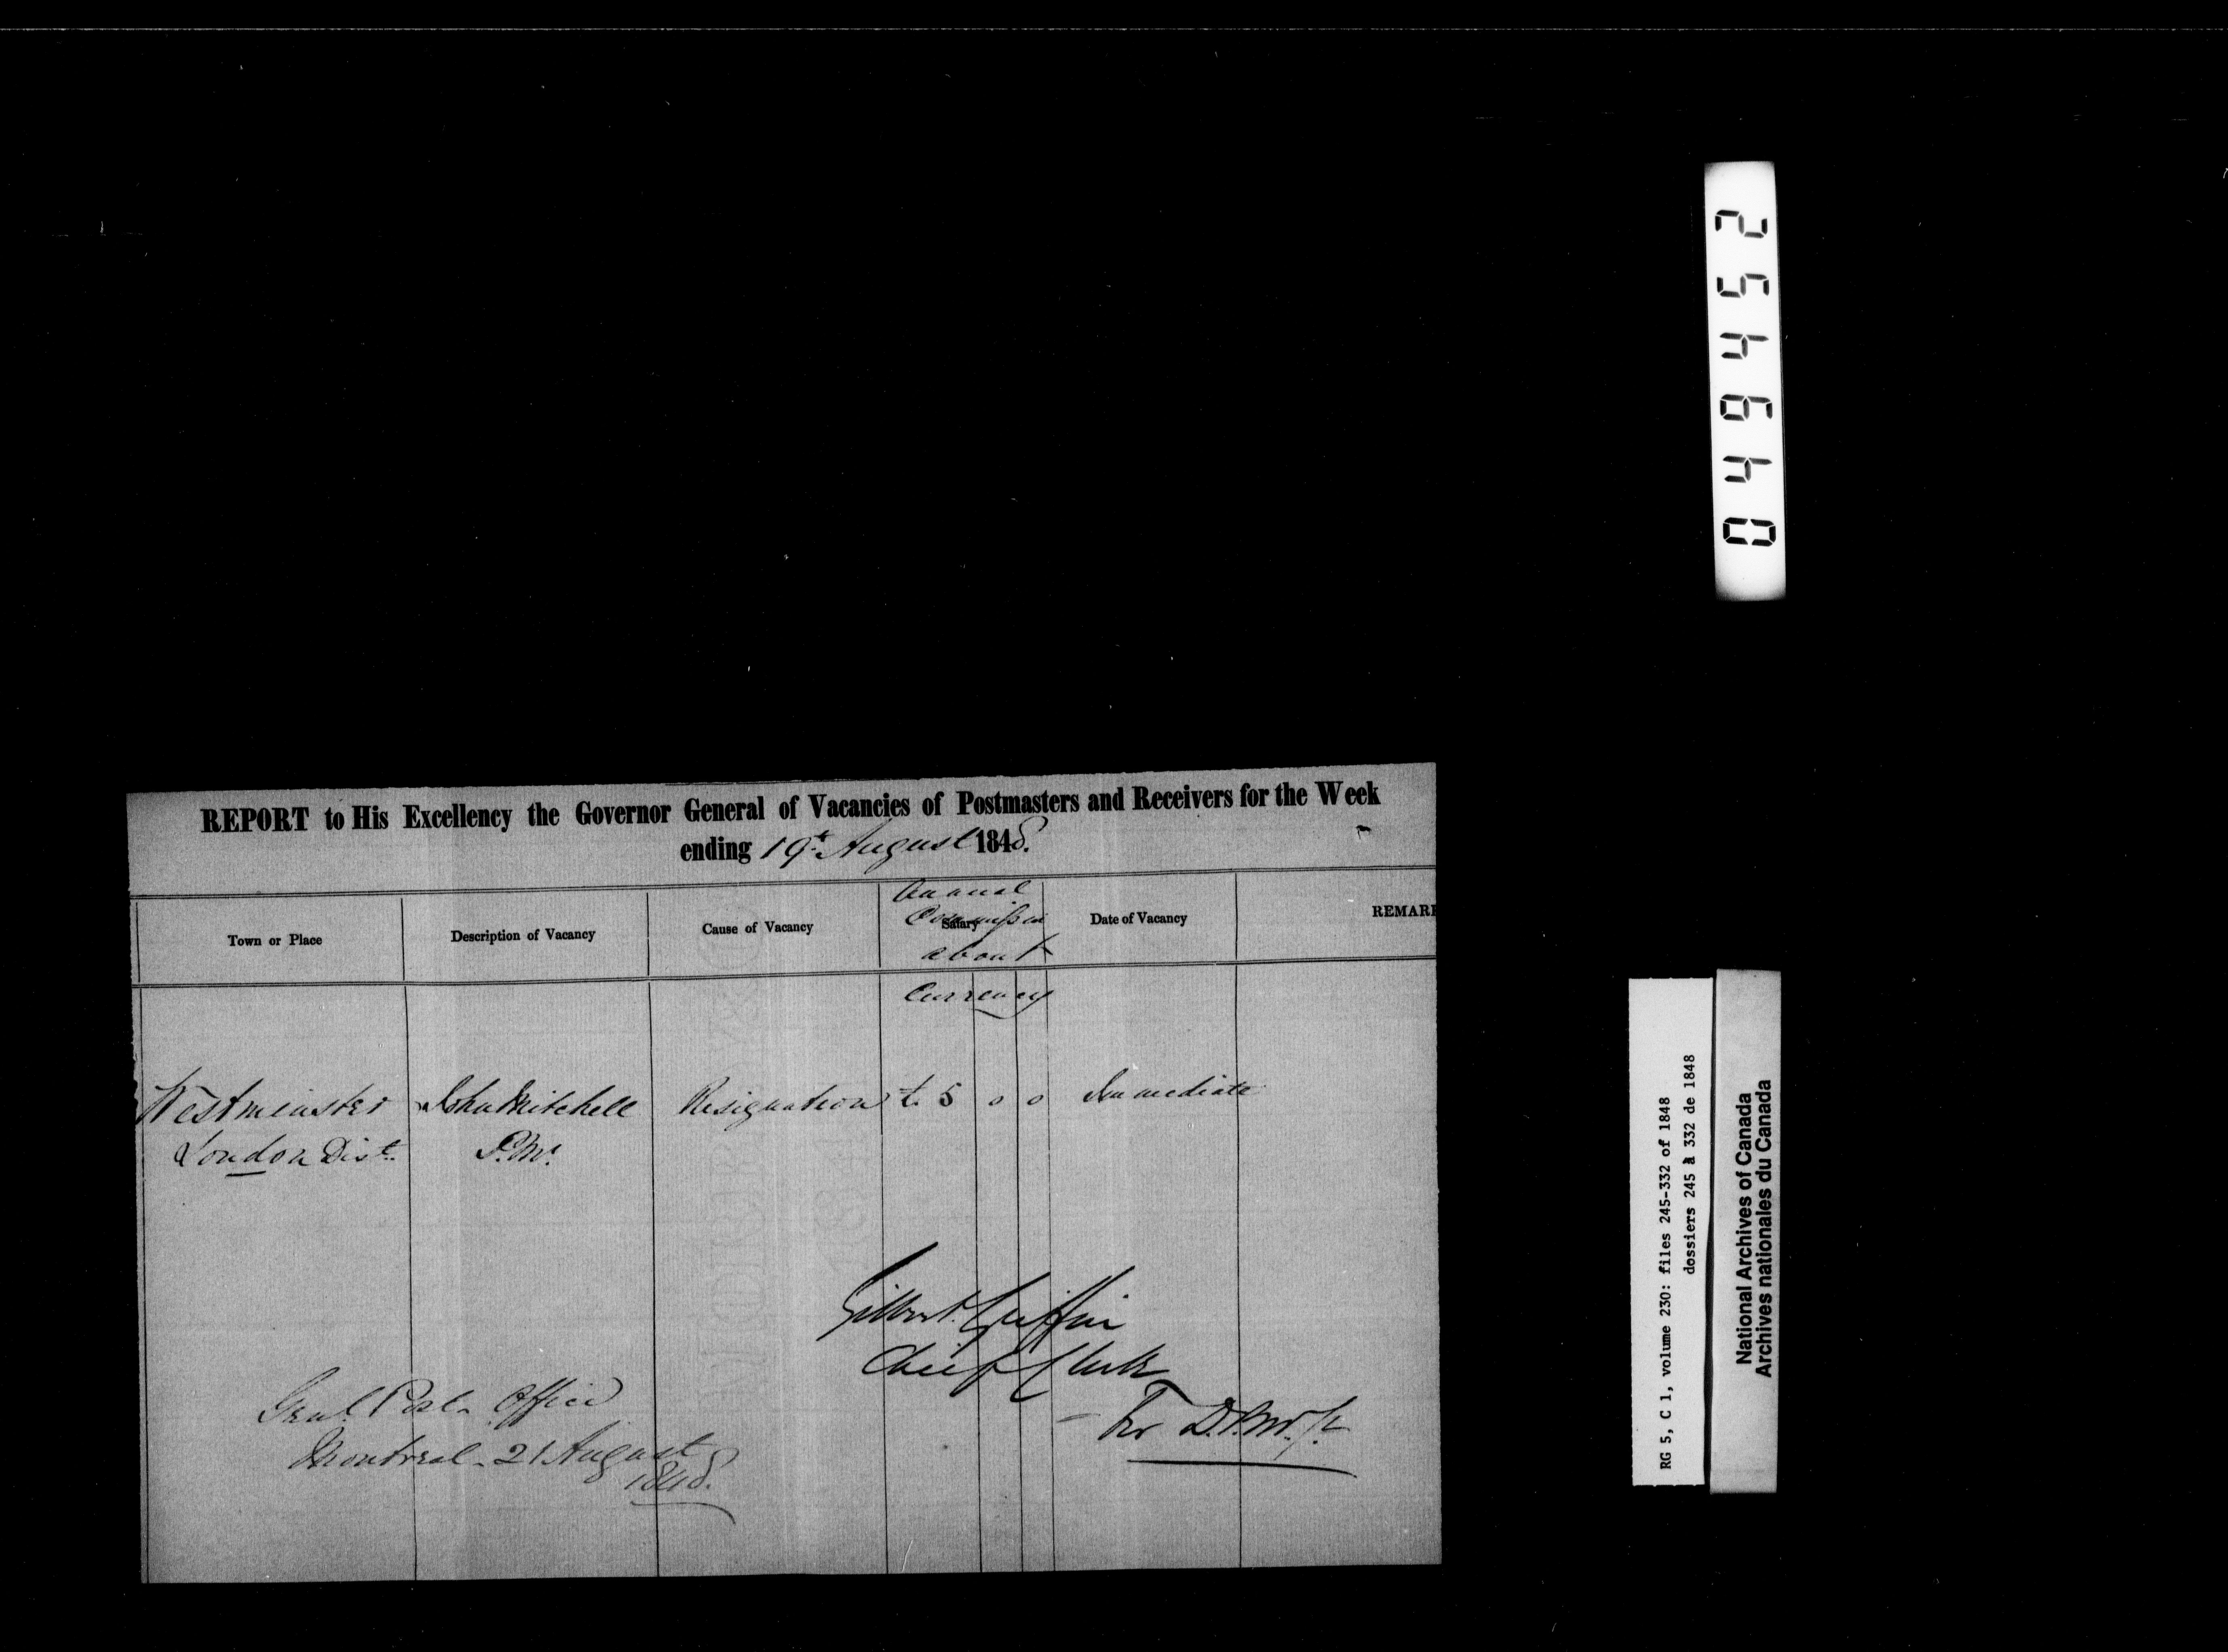 REPORT to His Excellency the Governor General of Vacancies of Postmasters and Receivers for the Week
ending 19t August 1848.
Town or Place
Description of Vacancy
Cause of Vacancy
Annual
Commission
Salary
about
Date of Vacancy
REMARK
Currency
Westminster
John Mitchell
Resignation
£ 5 0 0
Immediate
London Dist.
P.Mr.
Gilbert Griffin
Chief Clerk
For D.P.M.G.
Genl. Post Office
Montreal. 21 August
1848.
254640
RG 5, C 1, volume 230: files 245-332 of 1848
dossiers 245 à 332 de 1848
National Archives of Canada
Archives nationales du Canada